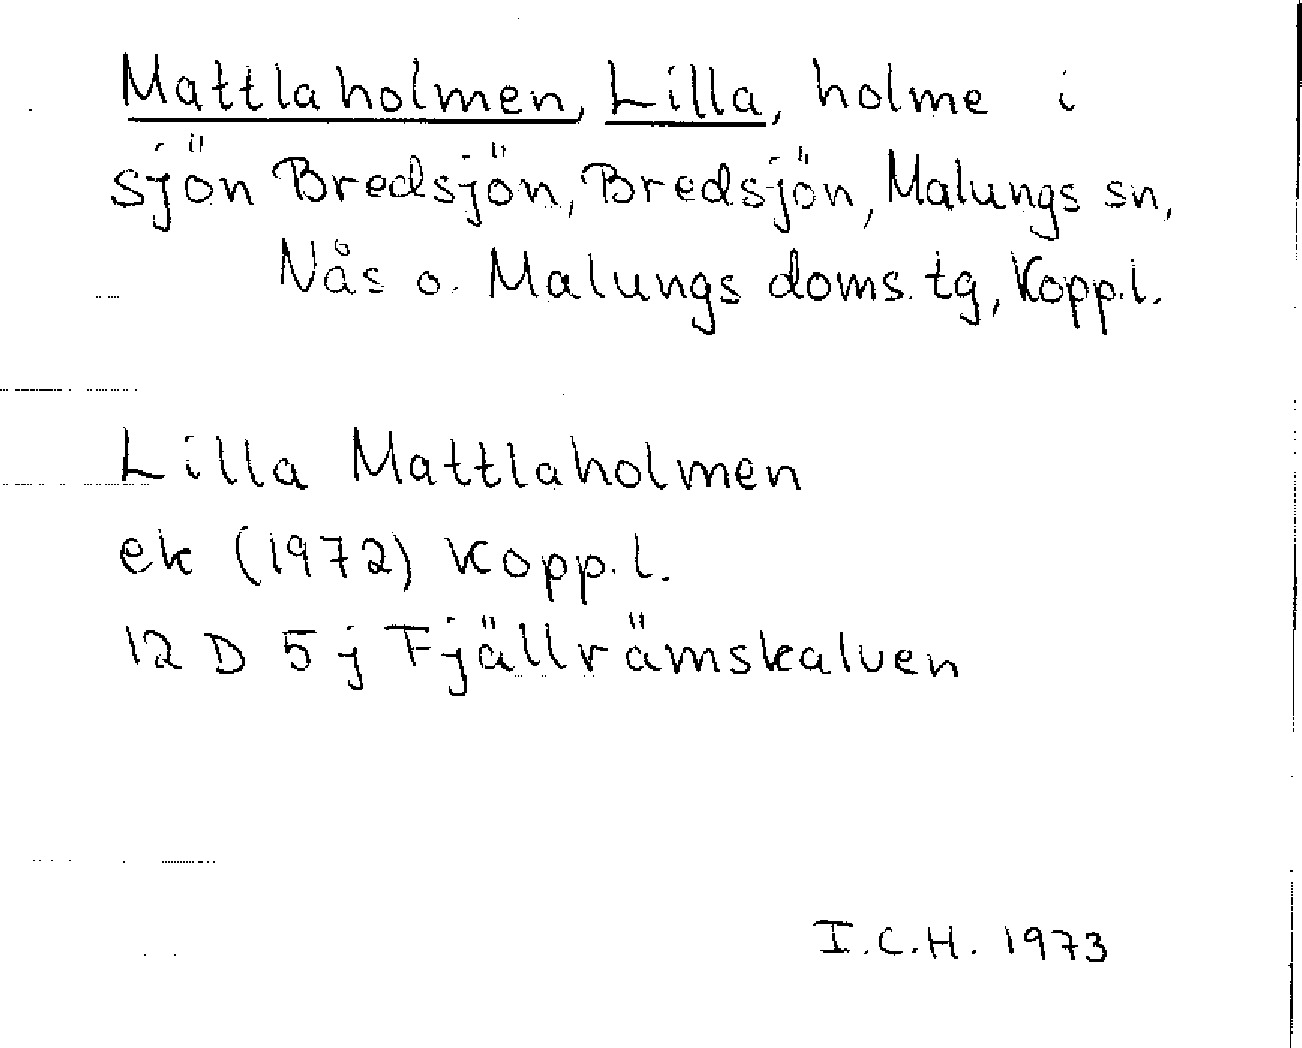 Mattlaholmen, Lilla, holme i
sjön Bredsjön, Bredsjön, Malungs sn,
Nås o. Malungs doms. tg, Kopp.l.
Lilla Mattlaholmen
ek (1972) Kopp.l.
12 D 5 j Fjällrämskalven
I.C.H. 1973